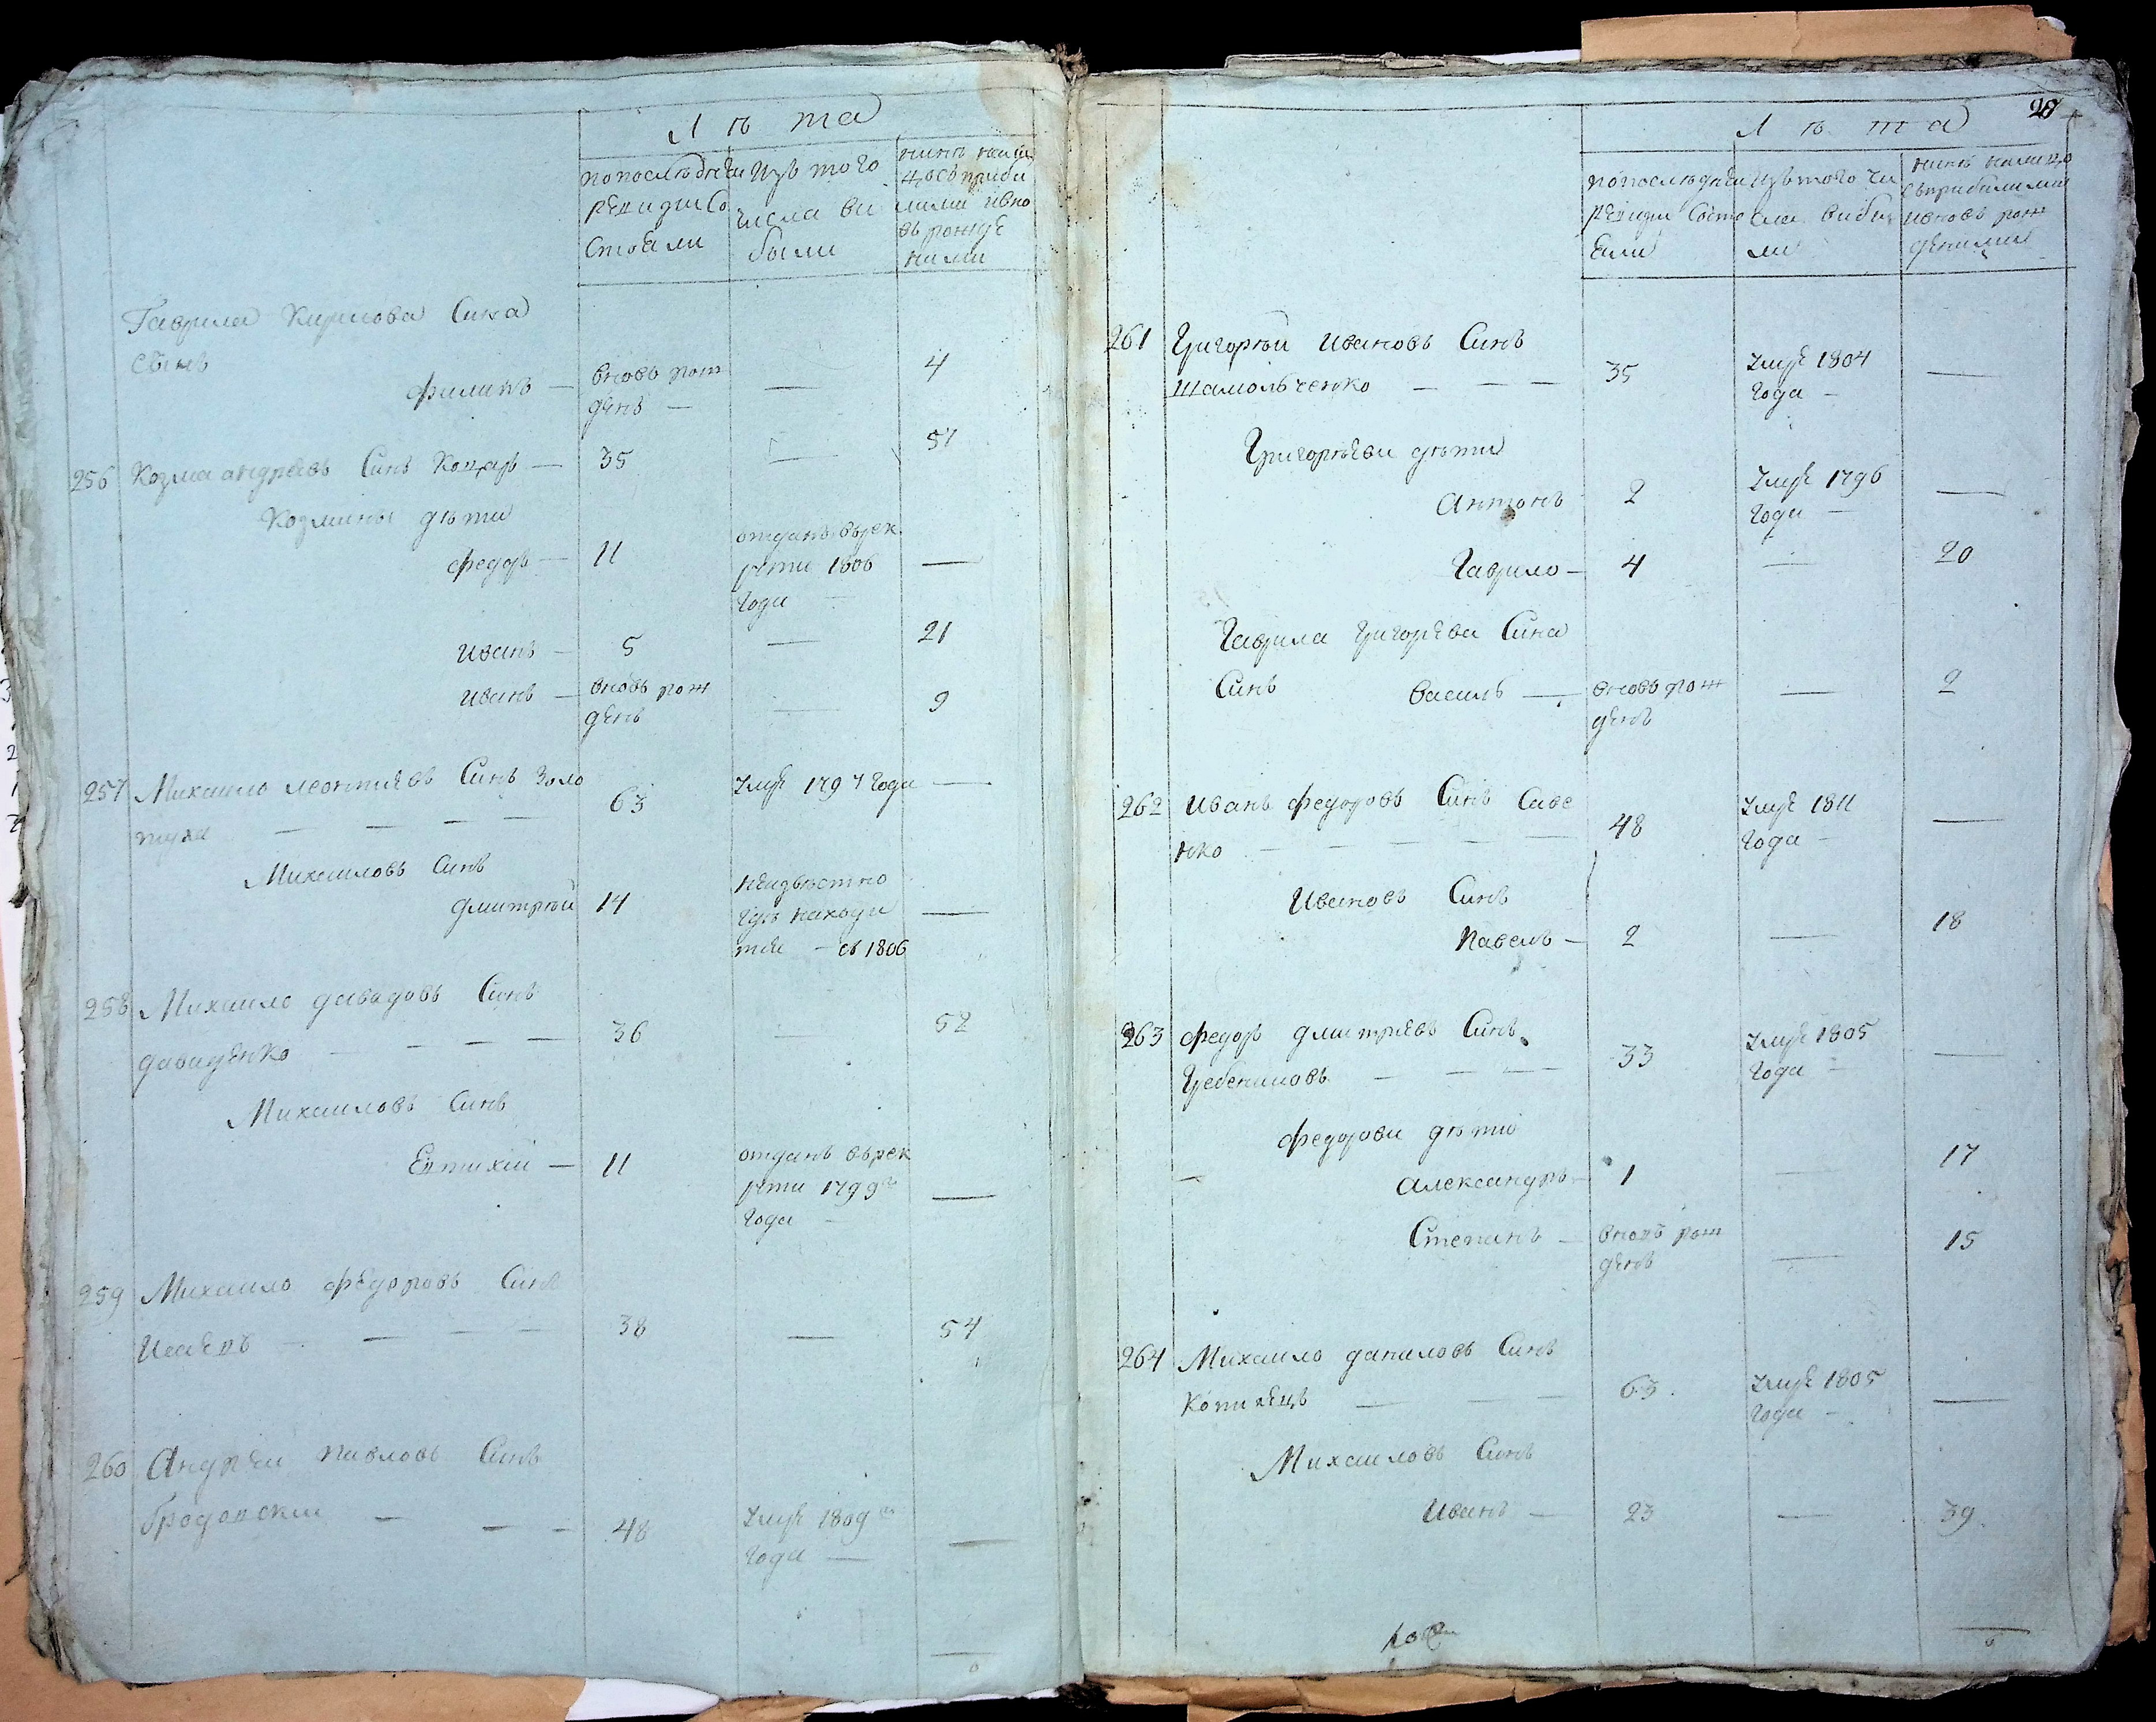 Лѣта
попослѣдней
ревизии со
стояли
изъ того
числа вы
были
нинѣ нали
цо съприби
лими ивно
въ рожде
ними
Гаврила Кирилова Сина
сынъ
Филипъ — вновь рож
денъ — — 4
256 Козма андреевъ Синъ Коцаръ — 35 — 51
Козмины дѣти
Федоръ — 11 отданъ върек
рути 1806
года — —
Иванъ — 5 — 21
Иванъ — вновь рож
денъ — 9
257 Михаило леонтиевъ Синъ Золо
туха — — — — 63 Умре 1797 года —
Михаиловъ Синъ
Дмитрий 14 неизвѣстно
гдѣ находи
тся — съ 1806 —
258 Михаило давидовъ Синъ
давиденко — — — — 36 — 52
Михаиловъ Синъ
Евтихий — 11 отданъ въ рек
рути 1799го
года — —
259 Михаило федоровъ Синъ
Исаевъ — — — — 38 — 54
260 Андрей павловъ Синъ
бродовски — — — 48 Умре 1809го
года — —
28
Лѣта
попослѣдней
ревизии состо
яли
изъ того чи
сла вибы
ли
нинѣ налицо
съприбилими
ивновь рож
деними
261 Григорий Ивановъ Синъ
шамольченко — — — 35 Умре 1804
года — —
Григорьеви дѣти
Антонъ 2 Умре 1796
года — —
Гаврило — 4 — 20
Гаврила григорьева Сина
Синъ Василь — вновь рож
денъ — 2
262 Иванъ федоровъ Синъ Саве
нко — — — — — 48 Умре 1811
года — —
Ивановъ Синъ
Павелъ — 2 — 18
263 Федоръ дмитриевъ Синъ
Гребениковъ — — — 33 Умре 1805
года — —
Федорови дѣти
Александръ — 1 — 17
Степанъ — вновь рож
денъ — 15
264 Михаило даниловъ Синъ
Копиевцъ — — 63 Умре 1805
года — —
Михаиловъ Синъ
Иванъ — 23 — 39